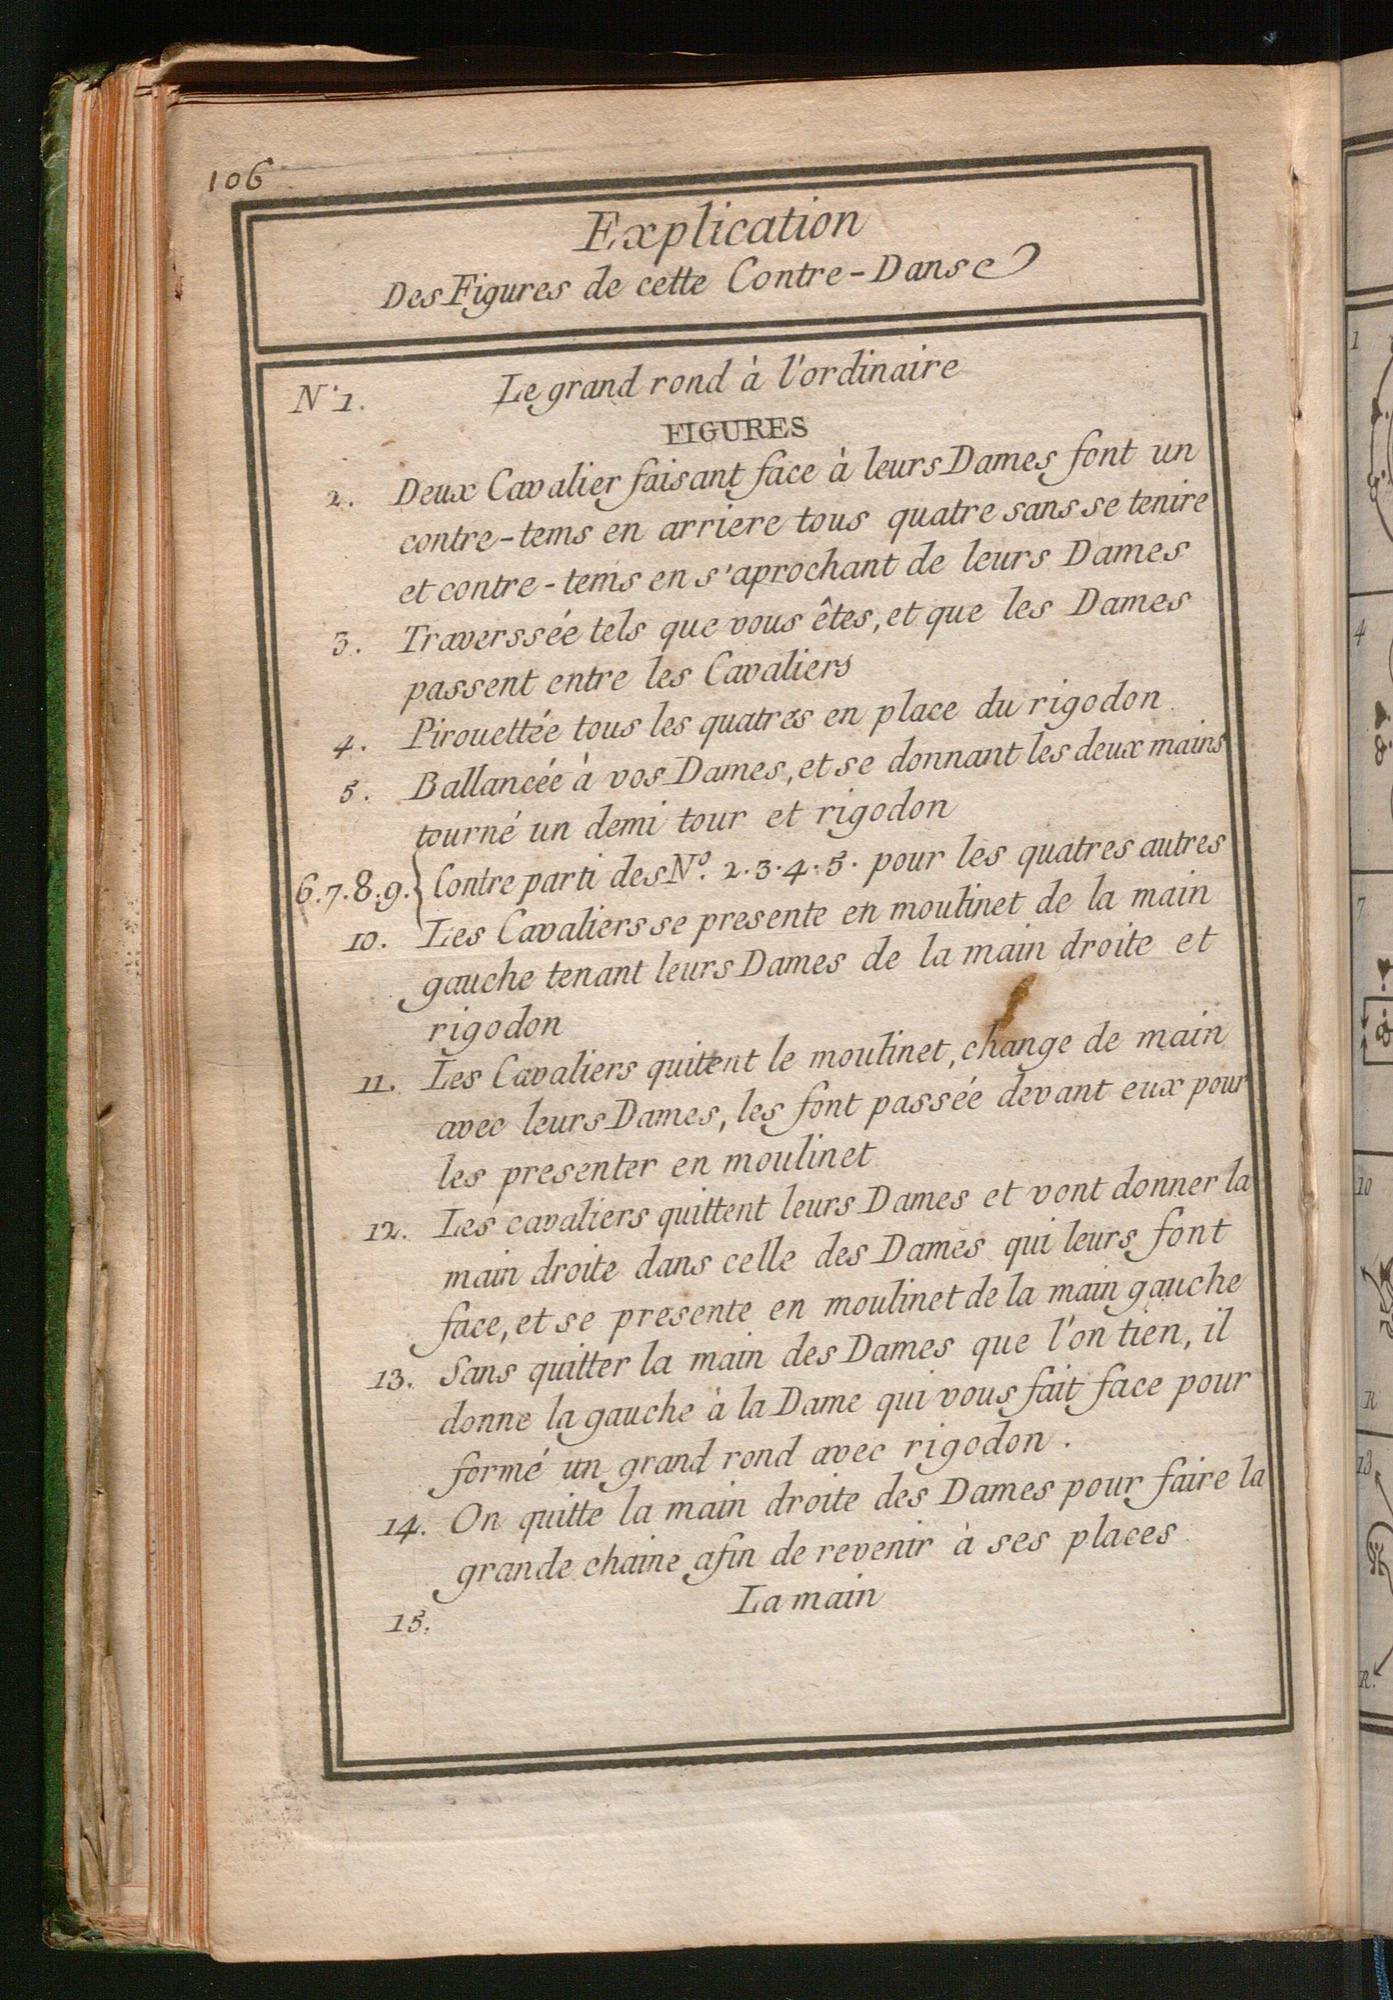 106
Explication
Des Figures de cette Contre-Danse
N° 1. Le grand rond à l'ordinaire
FIGURES
2. Deux Cavalier faisant face à leurs Dames font un
contre-tems en arriere tous quatre sans se tenire
et contre-tems en s'aprochant de leurs Dames
3. Traverssée tels que vous êtes, et que les Dames
passent entre les Cavaliers
4. Pirouettée tous les quatres en place du rigodon.
5. Ballancée à vos Dames, et se donnant les deux mains
tourné un demi tour et rigodon
6.7.8.9. { Contre parti des N° 2.3.4.5. pour les quatres autres
10. Les Cavaliers se presente en moulinet de la main
gauche tenant leurs Dames de la main droite et
rigodon
11. Les Cavaliers quitent le moulinet, change de main
avec leurs Dames, les font passée devant eux pour
les presenter en moulinet
12. Les cavaliers quittent leurs Dames et vont donner la
main droite dans celle des Dames qui leurs font
face, et se presente en moulinet de la main gauche
13. Sans quitter la main des Dames que l'on tien, il
donne la gauche à la Dame qui vous fait face pour
formé un grand rond avec rigodon.
14. On quitte la main droite des Dames pour faire la
grande chaine afin de revenir à ses places
15. La main
1
4
7
10
R
13
R.